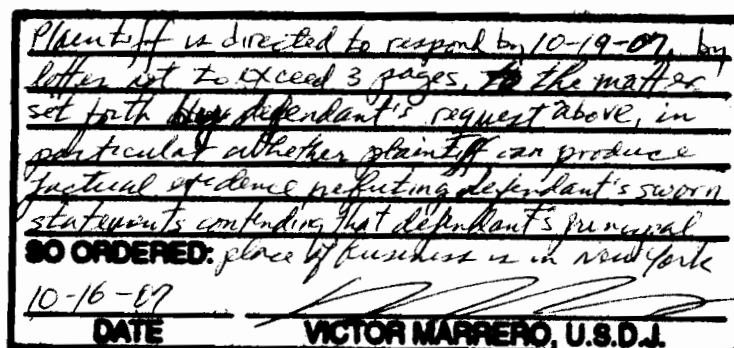 Plaintiff is directed to respond by 10-19-07, by
letter not to exceed 3 pages, to the matter
set forth by defendant's request above, in
particular whether plaintiff can produce
factual evidence refuting defendant's sworn
statements contending that defendant's principal
SO ORDERED: place of business is in New York
10-16-07
DATE VICTOR MARRERO, U.S.D.J.